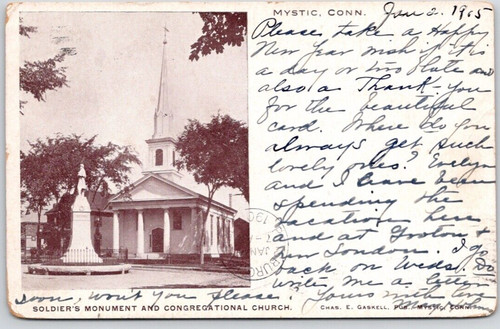 MYSTIC, CONN.
Jan 2. 1905
Please take a Happy
New Year wish if it is
a day or two late and
also a Thank-you
for the beautiful
card. Where do you
always get such
lovely ones? Evelyn
and I have been
spending the
vacation here
and at Groton &
New London. I go
back on Weds. Do
write me a letter
soon, won't you please? Yours
SOLDIER'S MONUMENT AND CONGREGATIONAL CHURCH.
CHAS. E. GASKELL, PUB., MYSTIC, CONN.
JAN